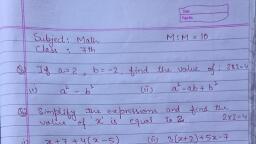 Subject: Math M:M = 10
Class : 7th
Q1 If a=2, b=-2, find the value of : 2x2=4
(i) a² - b² (ii) a² - ab + b²
Q2 Simplify the expressions and find the
value of 'x' is equal to 2. 2x2=4
(i) x+7+4(x-5) (ii) 3(x+2)+5x-7